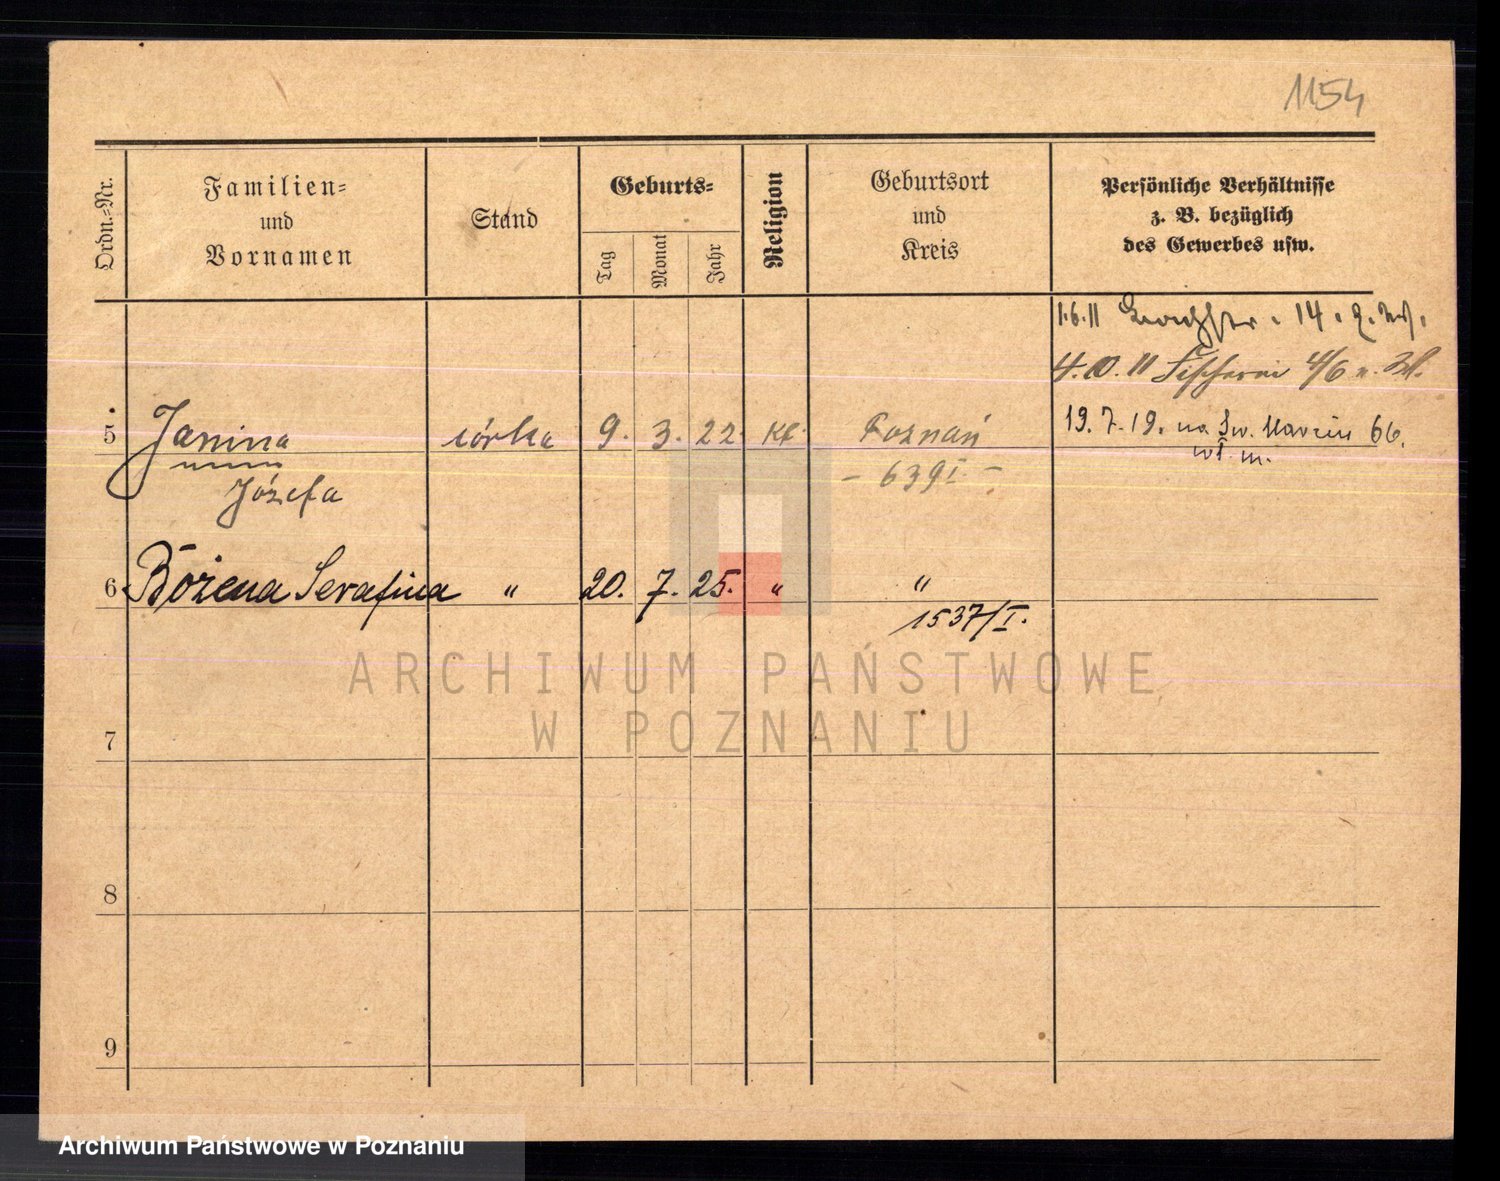 1154
Ordn.-Nr.
Familien-
und
Vornamen
Stand
Geburts-
Tag
Monat
Jahr
Religion
Geburtsort
und
Kreis
Persönliche Verhältnisse
z. B. bezüglich
des Gewerbes usw.
1.6.11 14.
4.10.11 4/6
5 Janina córka 9. 3. 22. Kt. Poznań 19.7.19. na Św. Marcin 66.
Józefa - 639 I - wł. m.
6 Bożena Serafina " 20. 7. 25. " "
1537/I.
7
8
9
ARCHIWUM PAŃSTWOWE
W POZNANIU
Archiwum Państwowe w Poznaniu